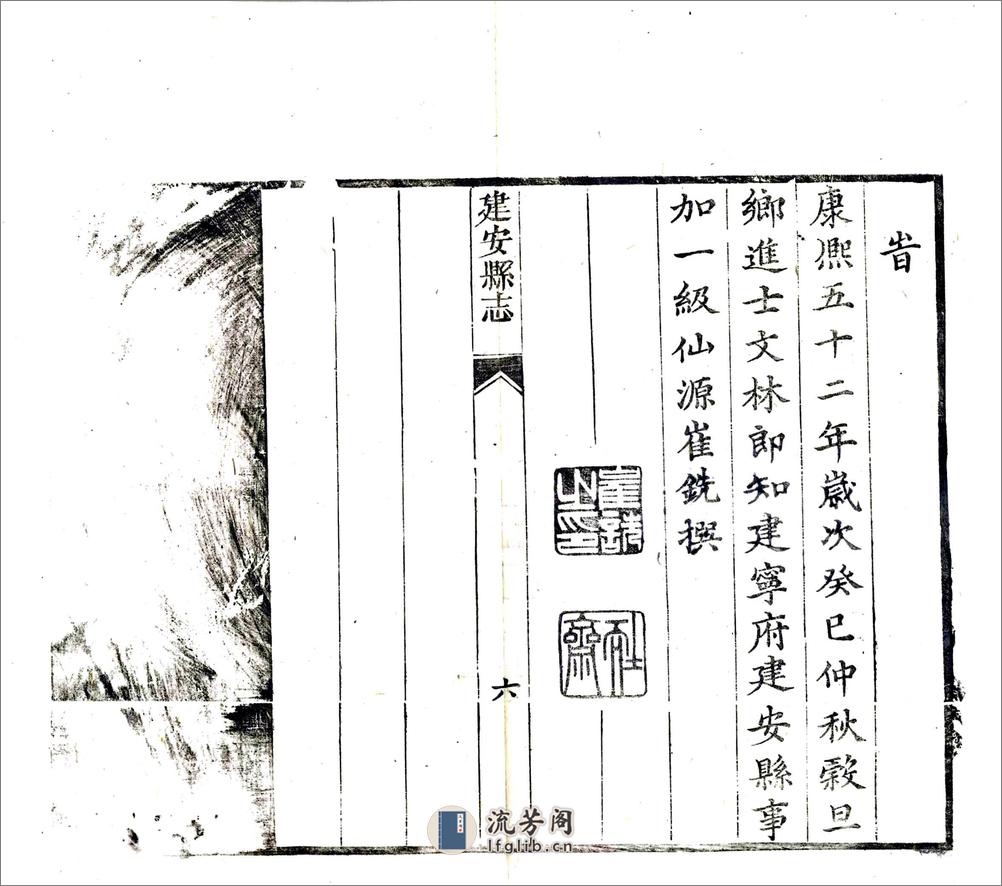 旹
康熈五十二年歲次癸巳仲秋穀旦
鄉進士文林郎知建寧府建安縣事
加一級仙源崔銑撰
建安縣志
六
流芳阁
lfglib.cn